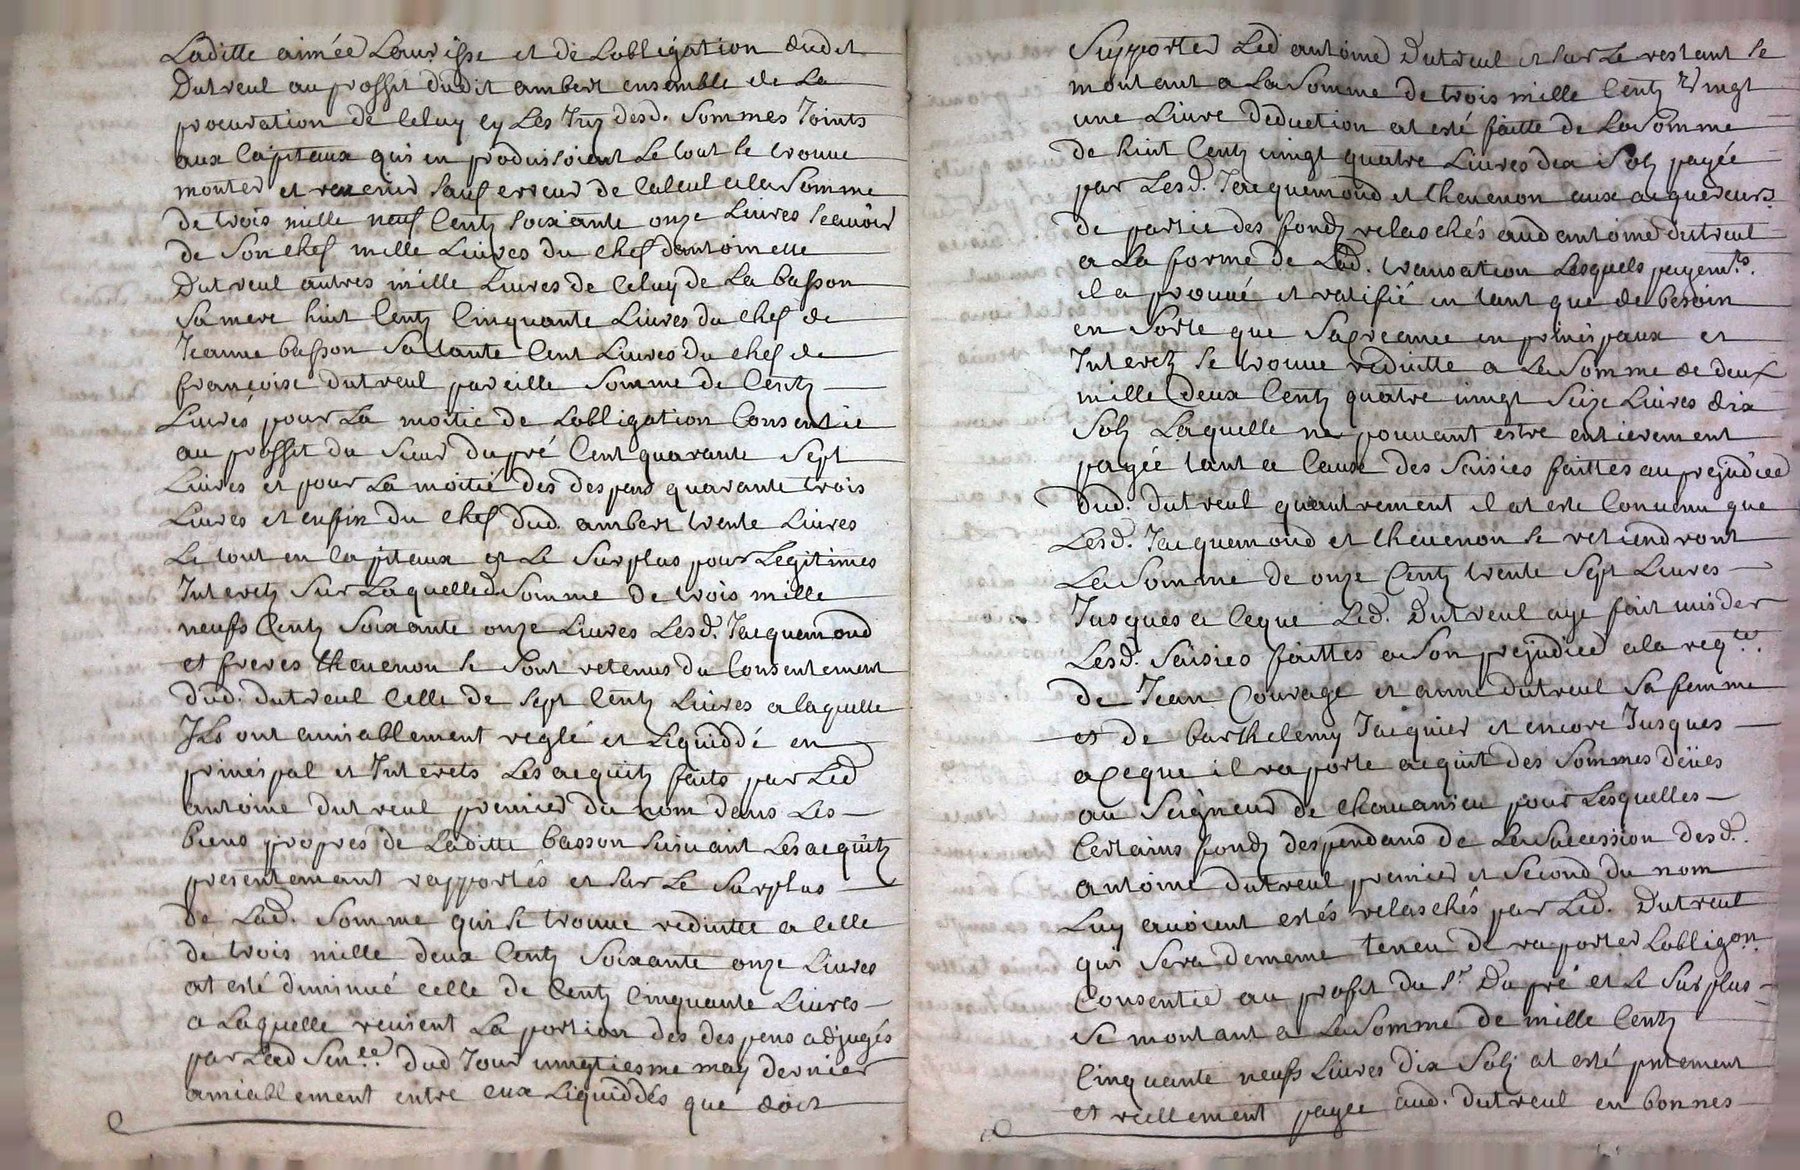 Laditte aimée Louvisse et de Lobligation dudit
Dutreul au proffit dudit ambert ensemble de La
procuration de Celuy cy Les Intz desd. Sommes Joints
aux Capitaux qui en produisoient Le tout Se trouve
monter et revenir Sauf erreur de Calcul a la Somme
de trois mille neuf Centz Soixante onze Livres Scavoir
de Son chef mille Livres du chef dantoinette
Dutreul autres mille Livres de Celuy de La basson
Sa mere huit Centz Cinquante Livres du chef de
Jeanne basson Sa tante Cent Livres du chef de
françoise dutreul pareille Somme de Centz
Livres pour La moitie de Lobligation Consentie
au proffit du Sieur dupré Cent quarante Sept
Livres et pour La moitié des despens quarante trois
Livres et enfin du chef dud. ambert trente Livres
Le tout en Capitaux et Le Surplus pour Legitimes
Interetz Sur Laquelled Somme de trois mille
neufs Centz Soixante onze Livres Lesd. Jacquemond
et freres thevenon Se Sont retenus du Consentement
dud. dutreul Celle de Sept Centz Livres a laquelle
Ils ont amiablement reglé et Liquiddé en
principal et Interets Les acquitz faits par Led
antoine dutreul premier du nom dans Les
biens propres de Laditte basson Suivant Les acquitz
presentement rapportés et Sur Le Surplus
de Lad. Somme qui Se trouve reduitte a Celle
de trois mille deux Centz Soixante onze Livres
at esté diminué celle de Centz Cinquante Livres
a Laquelle revient La portion des despens adjugés
par Lad Sen.ce dud Jour vingtiesme may dernier
amiablement entre eux Liquiddés que doit
Supporter Led antoine Dutreul et Sur Le restant Se
montant a La Somme de trois mille Centz Vingt
une Livre Deduction at esté faitte de La Somme
de huit Centz vingt quatre Livres dix Solz payée
par Lesd. Jacquemond et thevenon aux acquereurs
de partie des fondz relaschés aud antoine dutreul
a La forme de Lad. transation Lesquels payem.ts
il a prouvé et ratifié en tant que de besoin
en Sorte que Sa Creance en principaux et
Interetz Se trouve reduitte a La Somme de deux
mille deux Centz quatre vingt Seize Livres dix
Solz Laquelle ne pouvant estre entierement
payée tant a Cause des Saisies faittes au prejudice
dud. dutreul quautrement il at esté Convenu que
Lesd. Jacquemond et thevenon Se retiendront
La Somme de onze Centz trente Sept Livres
Jusques a Ceque Led. Dutreul aye fait vuider
Lesd. Saisies faittes a Son prejudice a la req.te
de Jean Courage et anne dutreul Sa femme
et de barthelemy Jacquier et encore Jusques
a Ceque il raporte acquit des Sommes deües
au Seigneur de Chavanieu pour Lesquelles
Certains fondz despendans de La Succession desd.
antoine dutreul premier et Second du nom
Luy avoient estés relaschés par Led. Dutreul
qui Sera demême teneu de raporter Lobligon.
Consentie au profit du S.r Dupré et le Surplus
Se montant a La Somme de mille Centz
Cinquante neufs Livres dix Solz at esté pntement
et reellement payée aud. dutreul en bonnes